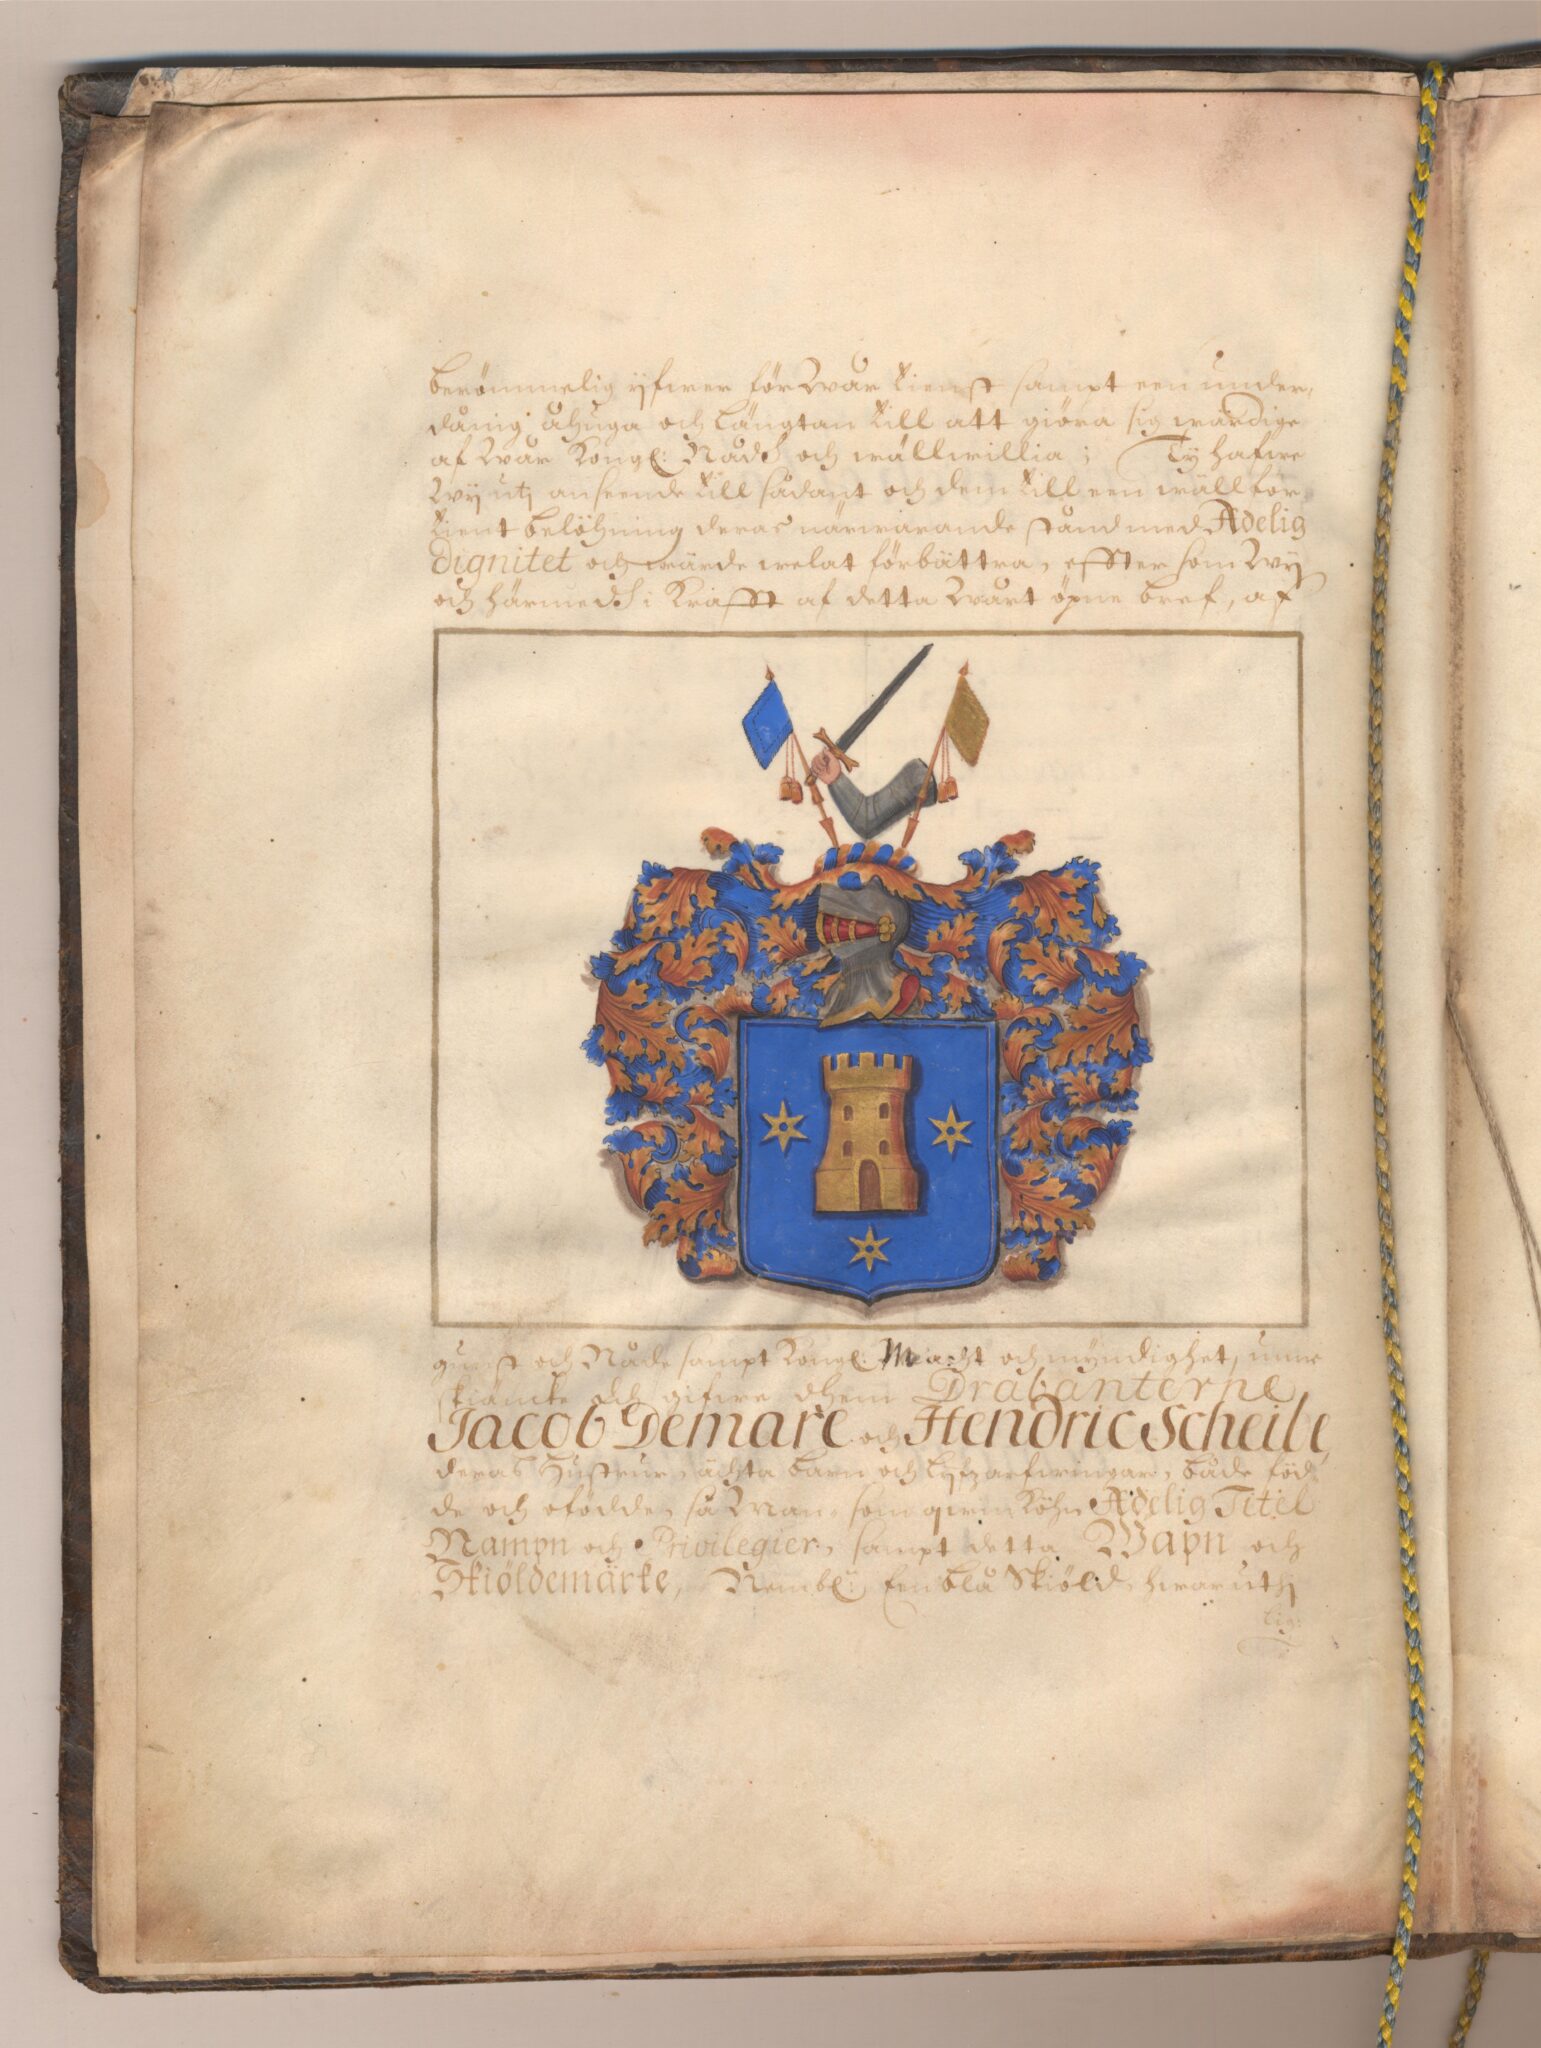 berömmelig ijfwer för Wår tienst sampt een under,
dånig åhuga och längtan till att giöra sig wärdige
af Wår Kongl: Nåd och wällwillia; Ty hafwe
Wij utj anseende till sådant och dem till een wällför
tient belöhning deras närwarande stånd med Adelig
Dignitet och wärde welat förbättra, effter som Wij
och härmed i Krafft af detta Wårt öpne bref, af
gunst och Nåde sampt Kongl: Macht och myndighet, unne
skiäncke och gifwe dhem Drabanterne
Jacob Demare och Hendric Scheile,
deras Hustrur, ächta barn och lijfzarfwingar, både föd,
de och ofödde, så Man, som qwin Köhn Adelig Titel
Nampn och Privilegier, sampt detta Wapn och
Skiöldemärke, Nembl: Een blå Skiöld, hwarutj